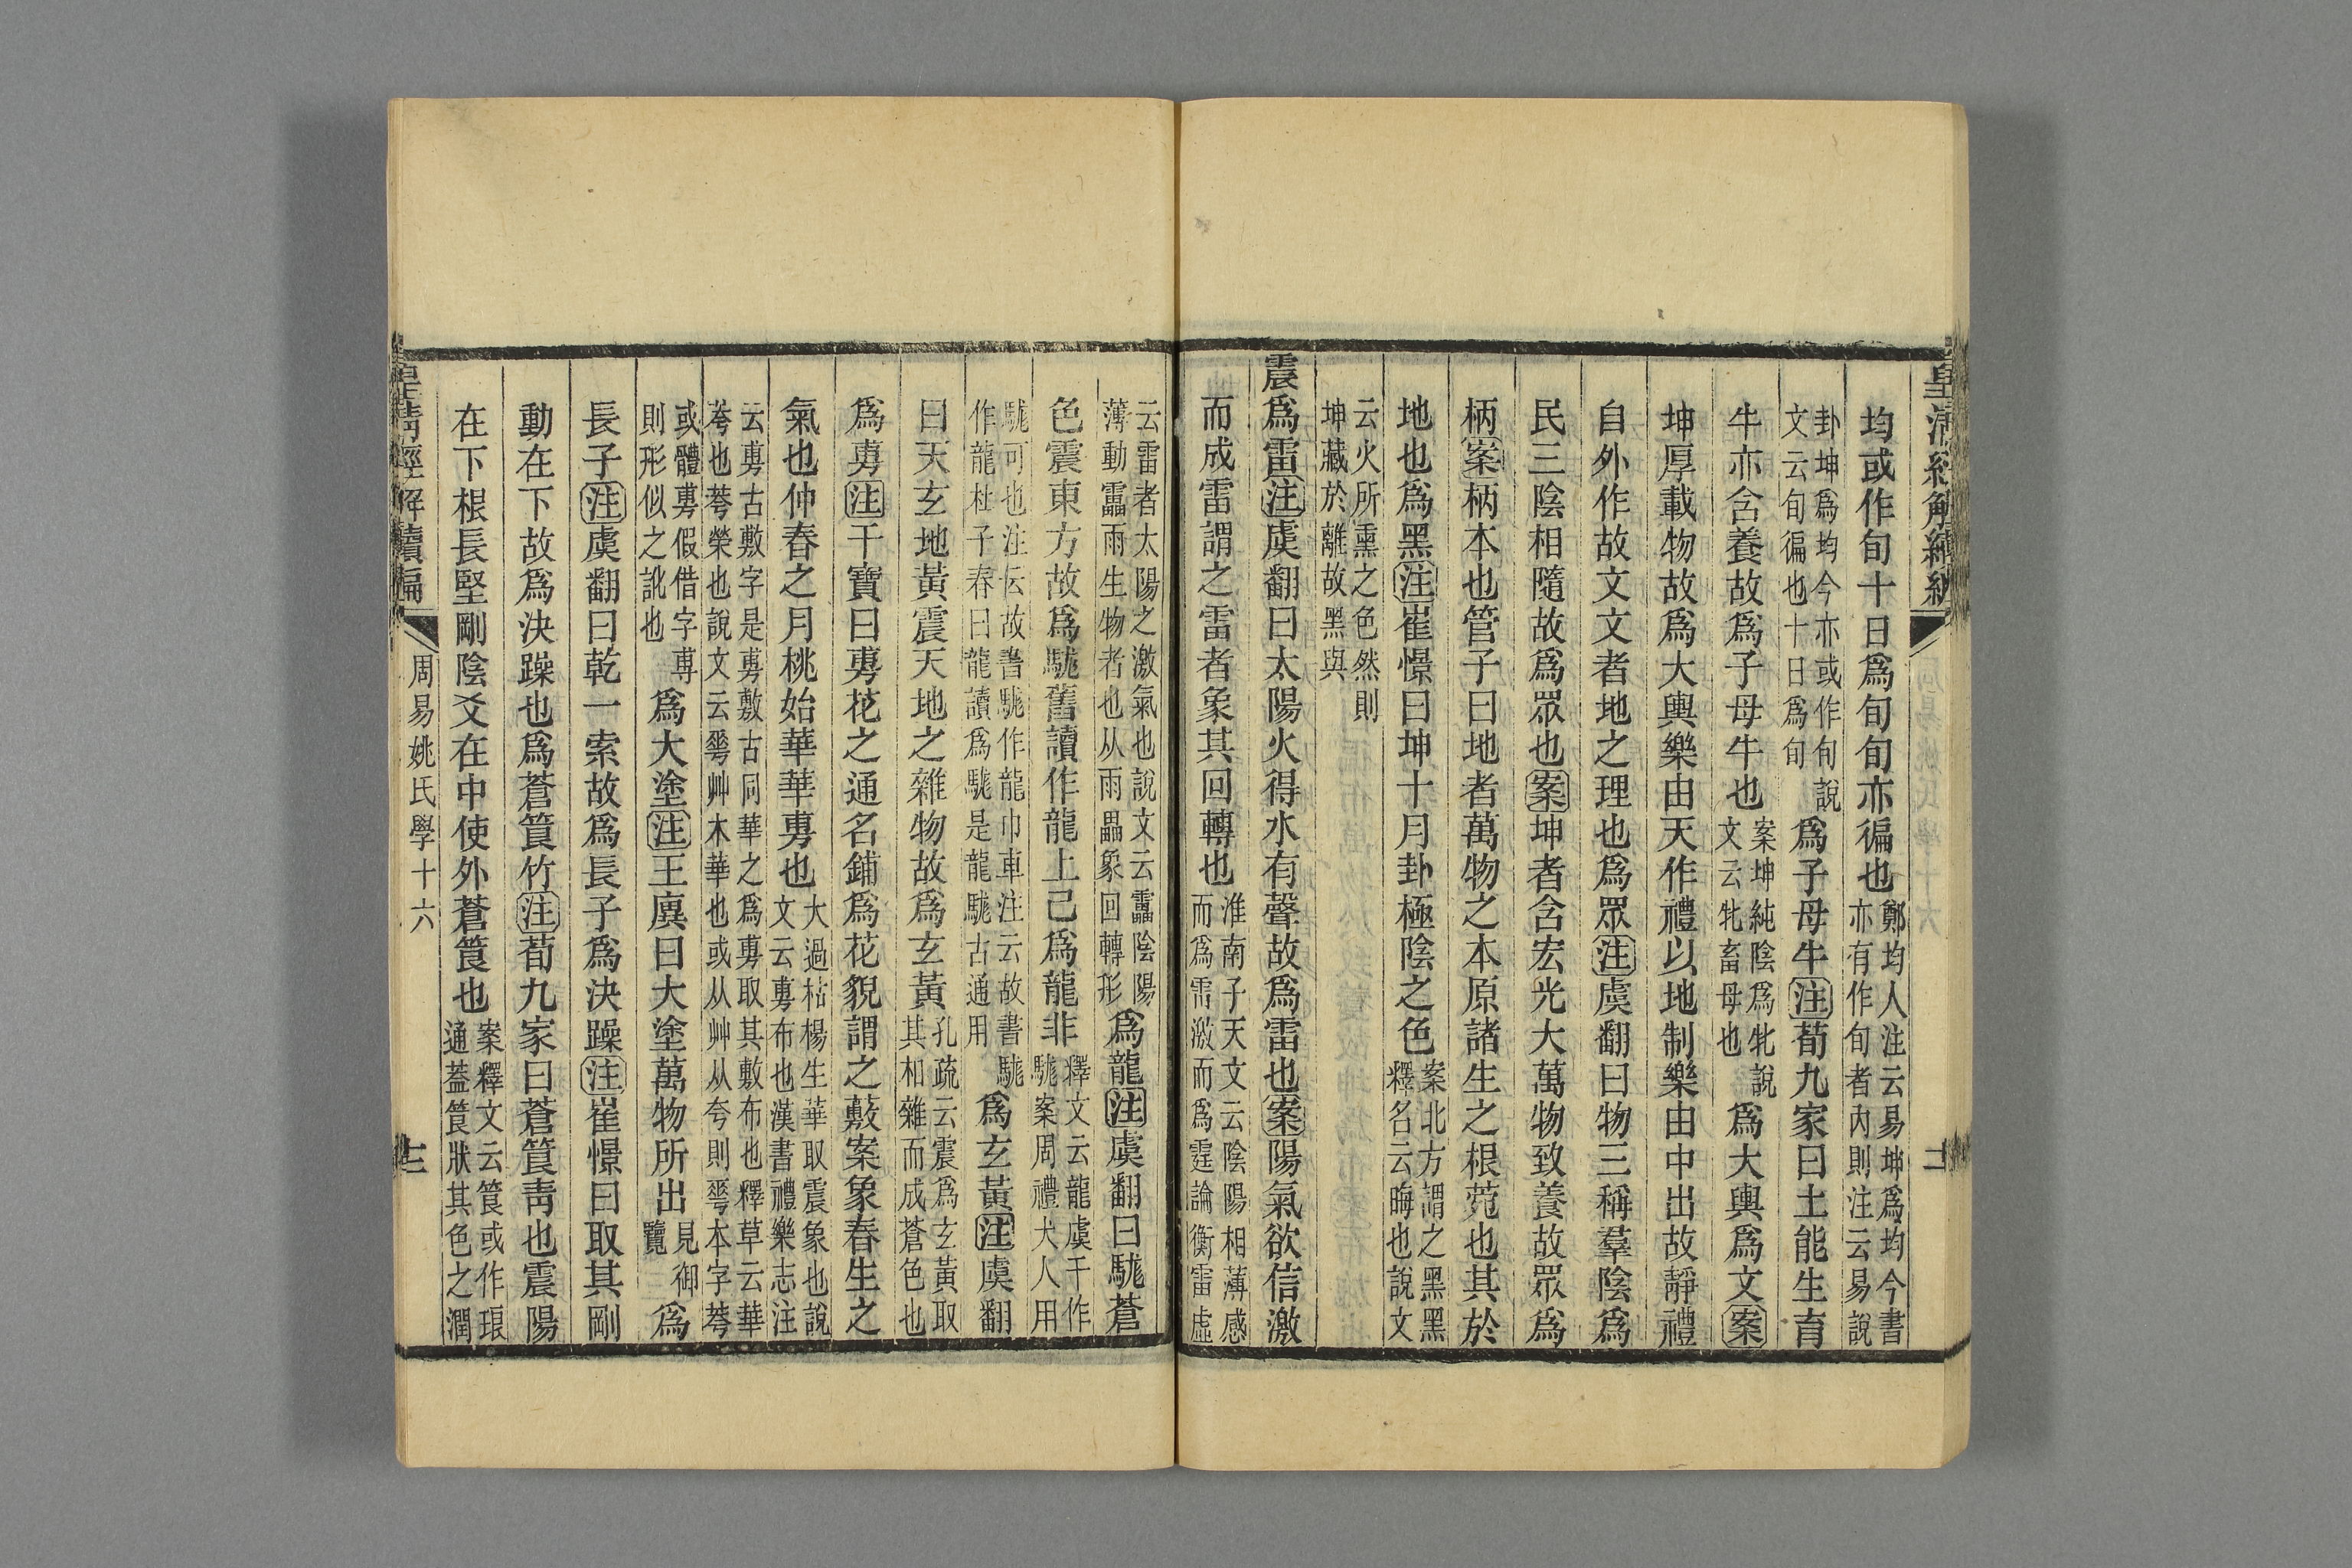 皇清經解續編
均或作旬十日爲旬旬亦徧也鄭均人注云易坤爲均今書亦有作旬者內則注云易說
卦坤爲均今亦或作旬說文云旬徧也十日爲旬爲子母牛注荀九家曰土能生育
牛亦含養故爲子母牛也案坤純陰爲牝說文云牝畜母也爲大輿爲文案
坤厚載物故爲大輿樂由天作禮以地制樂由中出故靜禮
自外作故文文者地之理也爲眾注虞翻曰物三稱羣陰爲
民三陰相隨故爲眾也案坤者含宏光大萬物致養故眾爲
柄案柄本也管子曰地者萬物之本原諸生之根菀也其於
地也爲黑注崔憬曰坤十月卦極陰之色案北方謂之黑黑釋名云晦也說文
云火所熏之色然則坤藏於離故黑與
震爲雷注虞翻曰太陽火得水有聲故爲雷也案陽氣欲信激
而成雷謂之雷者象其回轉也淮南子天文云陰陽相薄感而爲雷激而爲霆論衡雷虛
云雷者太陽之激氣也說文云靁陰陽薄動靁雨生物者也从雨畾象回轉形爲龍注虞翻曰駹蒼
色震東方故爲駹舊讀作龍上已爲龍非釋文云龍虞干作駹案周禮犬人用
駹可也注云故書駹作龍巾車注云故書駹作龍杜子春曰龍讀爲駹是龍駹古通用爲玄黃注虞翻
曰天玄地黃震天地之雜物故爲玄黃孔疏云震爲玄黃取其相雜而成蒼色也
爲旉注干寶曰旉花之通名鋪爲花貌謂之藪案象春生之
氣也仲春之月桃始華華旉也大過枯楊生華取震象也說文云旉布也漢書禮樂志注
云旉古敷字是旉敷古同華之爲旉取其敷布也釋草云華荂也荂榮也說文云蕚艸木華也或从艸从夸則蕚本字荂
或體旉假借字專則形似之訛也爲大塗注王廙曰大塗萬物所出見御覽爲
長子注虞翻曰乾一索故爲長子爲決躁注崔憬曰取其剛
動在下故爲決躁也爲蒼筤竹注荀九家曰蒼筤靑也震陽
在下根長堅剛陰爻在中使外蒼筤也案釋文云筤或作琅通葢筤狀其色之潤
皇清經解續編
周易姚氏學十六
十三